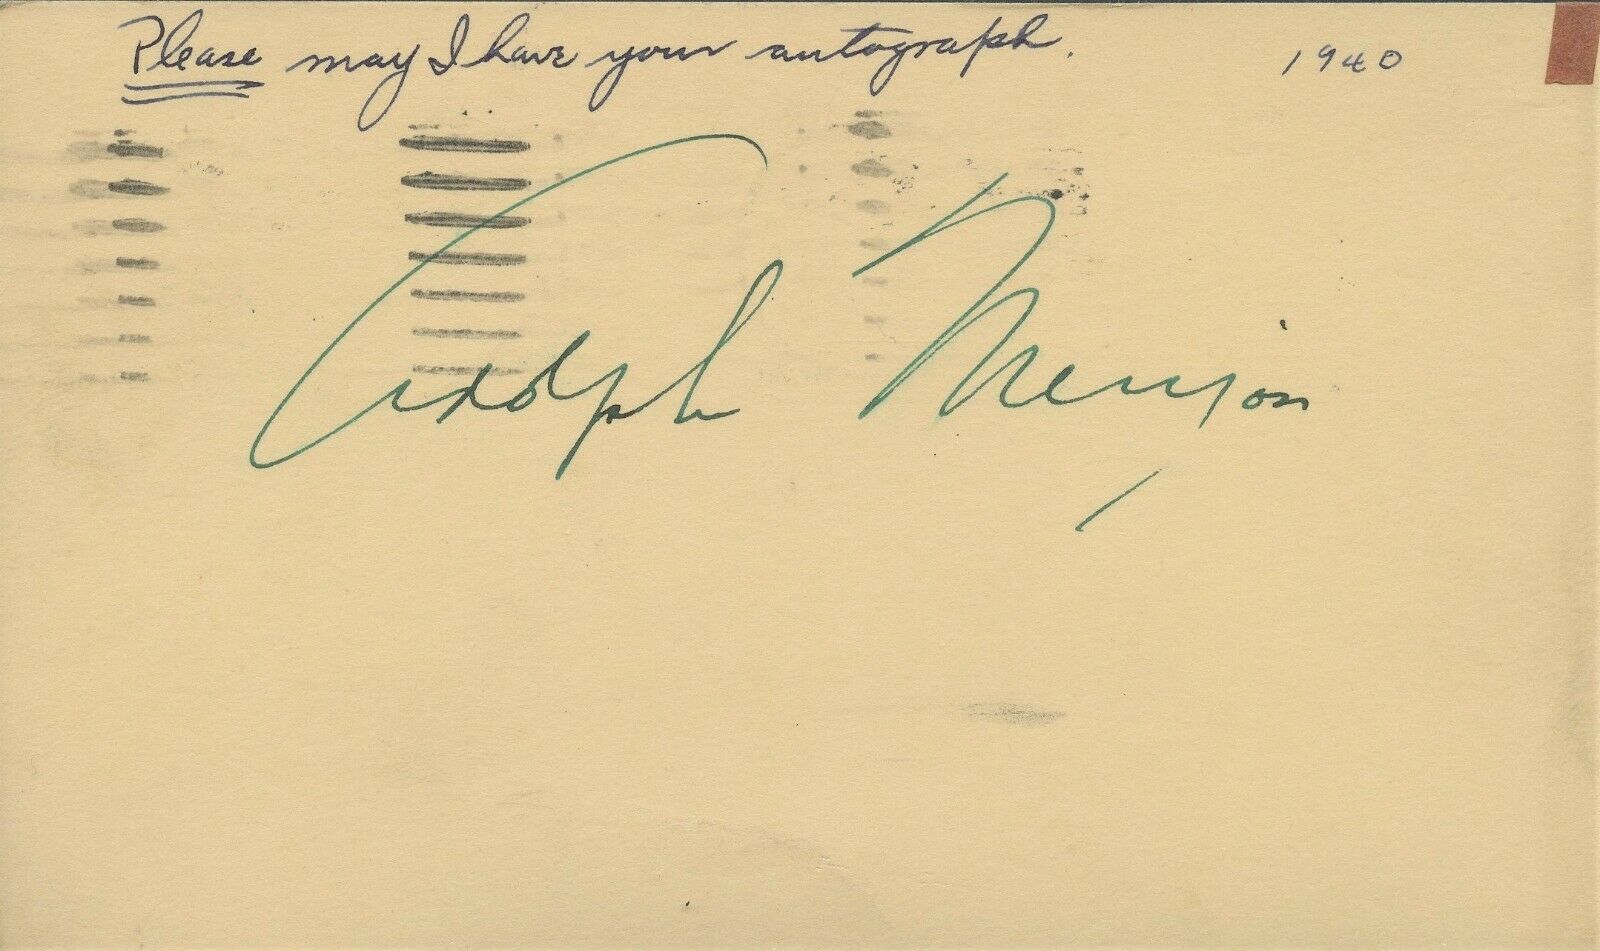 Please may I have your autograph. 1940
Adolph Menjou